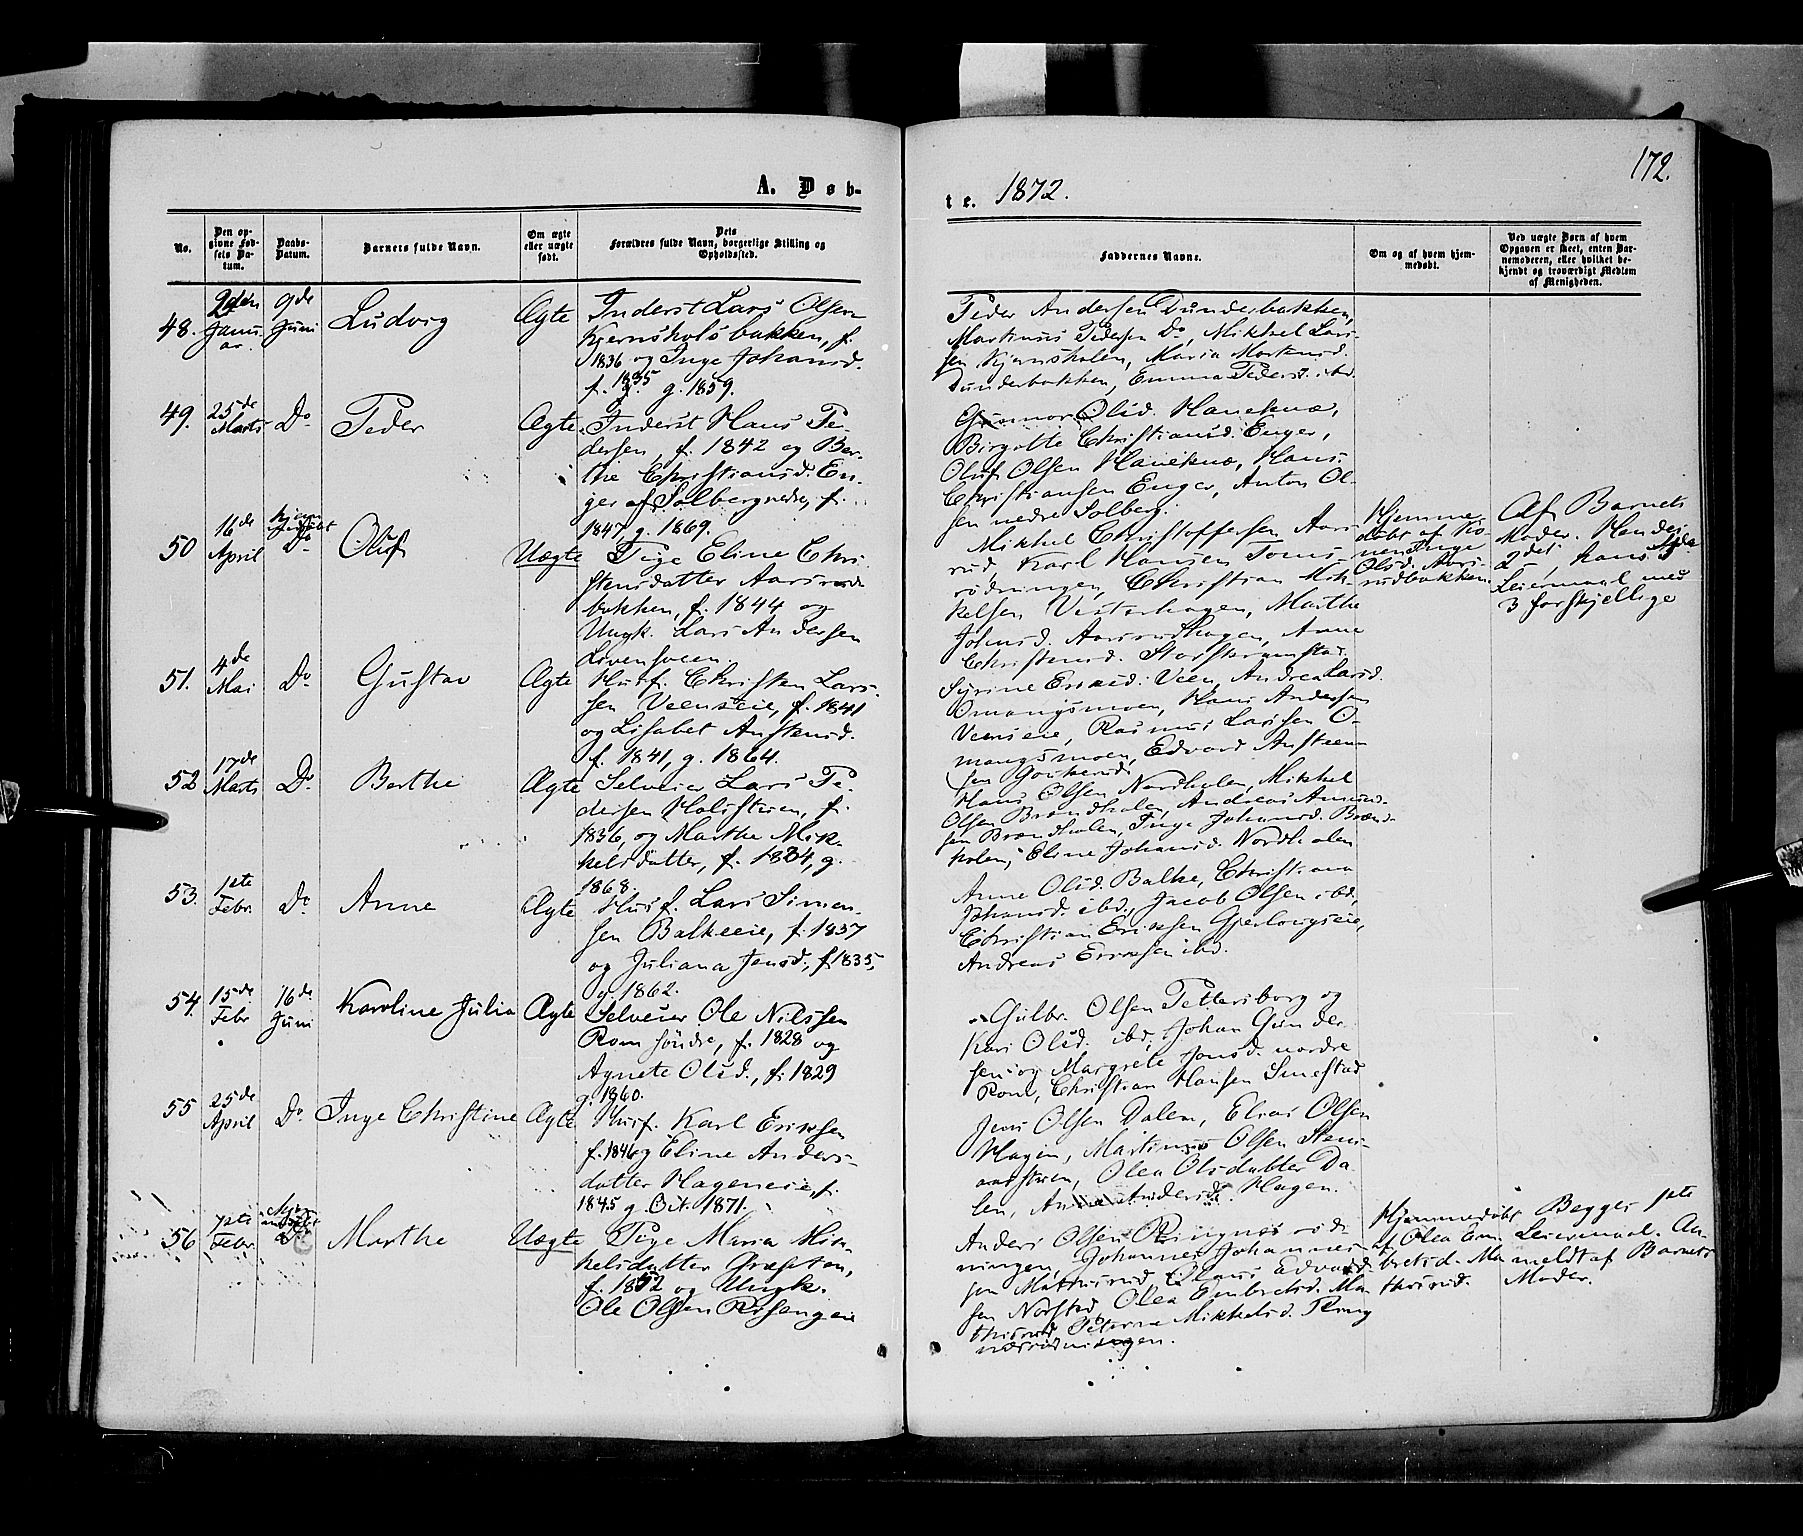 172.
A. Døb-
te. 1872.
No.
Den op-
givne Fød-
sels Da-
tum.
Daabs-
Datum.
Barnets fulde Navn.
Om ægte
eller uægte
født.
Dets
Forældres fulde Navn, borgerlige Stilling og
Opholdssted.
Faddernes Navne.
Om og af hvem hjem-
medøbt.
Ved uægte Børn af hvem
Opgaven er skeet, enten Bar-
nemoderen, eller hvilket be-
kjendt og troværdigt Medlem
af Menigheden.
48.
2den
Janu-
ar.
9de
Juni
Ludvig
Ægte
Inderst Lars Olsen
Kjernsholsbakken, f.
1836 og Inge Johansd.
f. 1835 g. 1859.
Peder Andersen Dunderbakken,
Martinus Pedersen Do, Mikkel Lar-
sen Kjernsholen, Maria Martinsd.
Dunderbakken, Emma Pedersd. ibd.
49.
25de
Marts
Do
Peder
Ægte.
Inderst Hans Pe-
dersen, f. 1842 og Ber-
the Christiansd. En-
ger af Solbergnedre, f.
1847, g. 1869.
Gunnor Olsd. Haneknæ,
Birgitte Christiansd. Enger,
Oluf Olsen Haneknæ, Hans
Christiansen Enger, Anton Ol-
sen nedre Solberg.
50
16de
April
Hjem
døbt
Do
Oluf
Uægte
Pige Eline Chri-
stensdatter Aarsrud-
bakken, f. 1844 og
Ungk. Lars Andersen
Livensveen
Mikkel Christoffersen Aars-
rud, Karl Hansen Toms-
rødningen, Christian Mik-
kelsen Vesterhagen, Marthe
Johnsd. Aarsrudhagen, Anne
Christensd. Storskramstad.
Hjemme-
døbt af Ko-
nen Inge
Olsd. Aars-
rudbakken.
Af Barnets
Moder. Hendes
2det, hans 3die
Leiermaal med
3 forskjellige
51.
4de
Mai
Do
Gustav
Ægte
Husf. Christen Lars-
sen Veenseie, f. 1841
og Lisabet Anstensd.
f. 1841, g. 1864.
Syrine Ersd. Veen, Andrea Larsd.
Omangsmoen, Hans Andersen
Veenseie, Rasmus Larssen O-
mangsmoen, Edvard Ansten-
sen
52
17de
Marts
Do
Berthe
Ægte
Selveier Lars Pe-
dersen Holistuen, f.
1836, og Marthe Mik-
kelsdatter, f. 1834, g.
1868
Hans Olsen Nordholen, Mikkel
Olsen Brændholen, Andreas Amund-
sen Brændholen, Inge Johansd. Brænd-
holen, Eline Johansd. Nordholen
53.
1ste
Febr.
Do
Anne
Ægte
Husf. Lars Simen-
sen Balkeeie, f. 1837
og Juliana Jensd., f. 1835,
g. 1862.
Anne Olsd. Balke, Christiana
Johansd. ibd., Jacob Olsen ibd,
Christian Eriksen Gjerlougseie,
Andreas Eriksen ibd.
54.
15de
Febr
16de
Juni
Karoline Julia
Ægte
Selveier Ole Nilssen
Rom søndre, f. 1828 og
Agnete Olsd., f. 1829
g. 1860.
Gulbr. Olsen Pettersborg og
Kari Olsd. ibd, Johan Gunder-
sen og Margrete Jonsd. nordre
Rom, Christian Hansen Smestad
55
25de
April
Do
Inge Christine
Ægte
Husf. Karl Eriksen
f. 1846 og Eline Anders-
datter Hageneie, f.
1845 g. Oct. 1871.
Jens Olsen Dalen, Elias Olsen
Hagen, Martinus Olsen Stens-
aastuen, Olea Olsdatter Da-
len, Anne Andersd. Hagen.
56
7de
Febr.
Do
Marthe
Uægte
Pige Maria Mik-
kelsdatter Græstøn,
f. 1852 og Ungk.
Ole Olsen Rosengeie
Anders Olsen Ringnesrød-
ningen, Johannes Johannes-
sen Mathisrud, Claus Edvard-
sen Norstad, Olea Embretsd. Ma-
thisrud, Peterne Mikkelsd. Ring
nesrødningen.
Hjemmedøbt
af Olea Em-
bretsd. Ma-
thisrud.
Begges 1ste
Leiermaal. An-
meldt af Barnets
Moder.